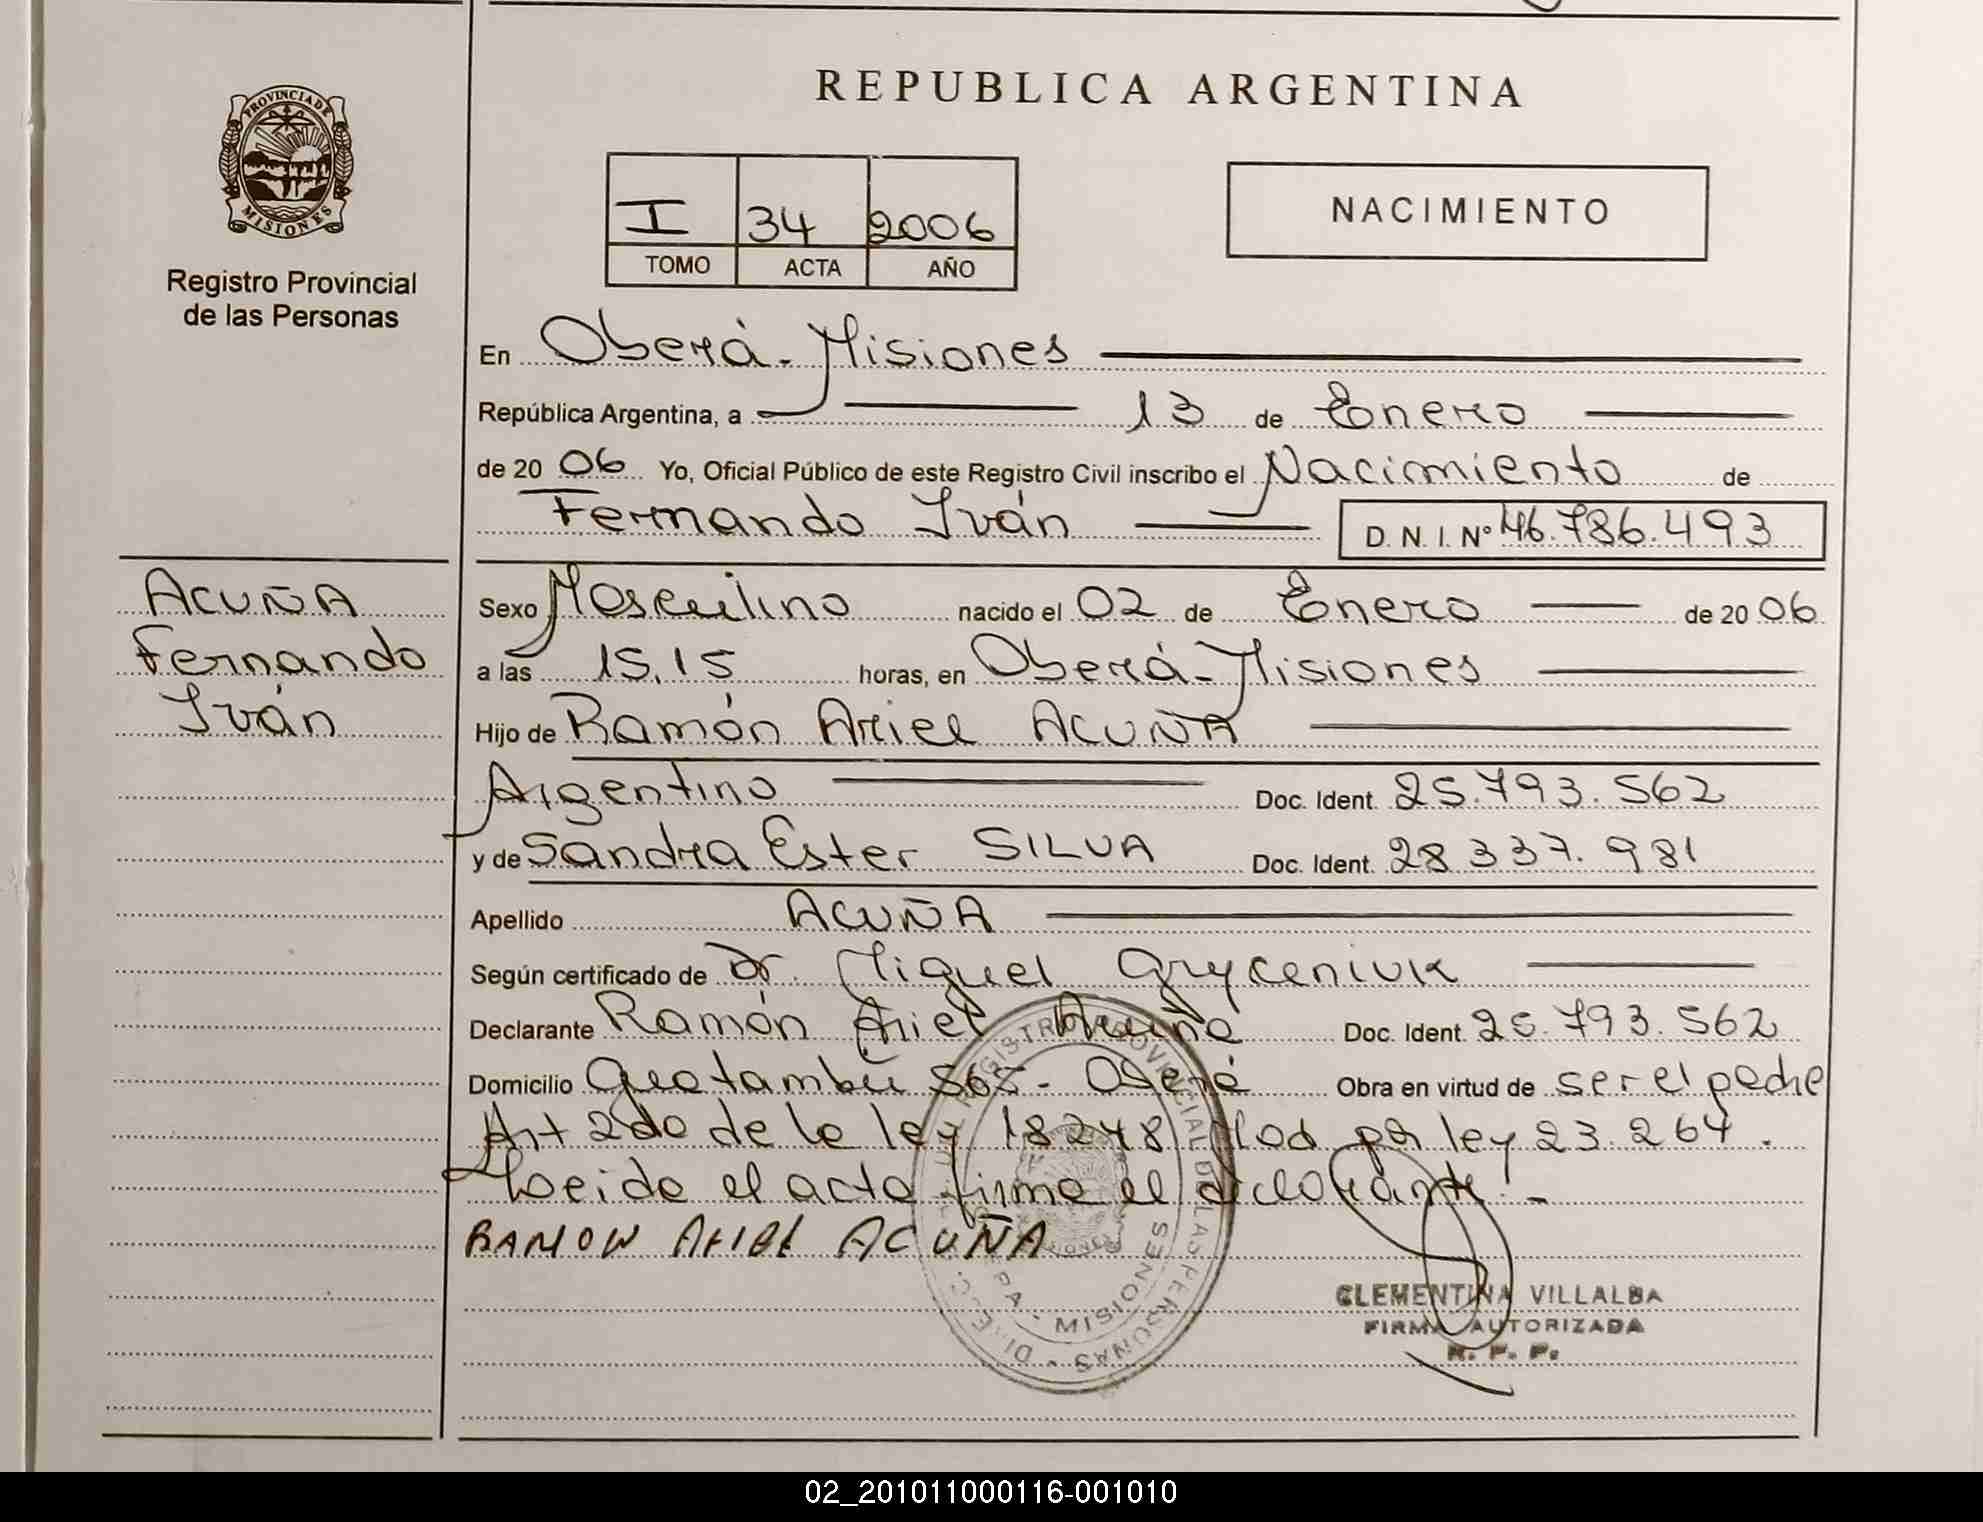 REPUBLICA ARGENTINA
PROVINCIA DE
MISIONES
Registro Provincial
de las Personas
I 34 2006
TOMO ACTA AÑO
NACIMIENTO
En Oberá - Misiones
República Argentina, a 13 de Enero
de 20 06 Yo, Oficial Público de este Registro Civil inscribo el Nacimiento de
Fernando Iván D. N. I. Nº 46.786.493
ACUÑA
Fernando
Iván
Sexo Masculino nacido el 02 de Enero de 20 06
a las 15.15 horas, en Oberá - Misiones
Hijo de Ramón Ariel ACUÑA
Argentino Doc. Ident. 25.793.562
y de Sandra Ester SILVA Doc. Ident. 28 337.981
Apellido ACUÑA
Según certificado de Dr. Miguel Gryceniuk
Declarante Ramón Ariel Acuña Doc. Ident. 25.793.562
Domicilio Guatambu - Oberá Obra en virtud de ser el padre
Art 2do de la ley 18248 Mod por ley 23.264.
Leida el acta firma el declarante. -
RAMON ARIEL ACUÑA
REGISTRO PROVINCIAL DE LAS PERSONAS
MISIONES
CLEMENTINA VILLALBA
FIRMA AUTORIZADA
R. P. P.
02_201011000116-001010